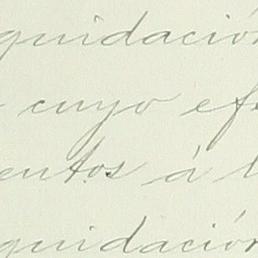 quidación
cuyo efe
entos á l
quidación